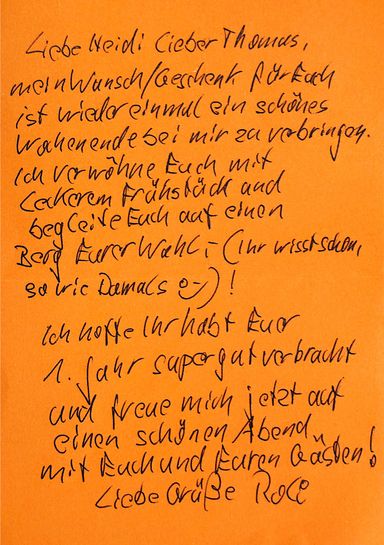 Liebe Heidi Lieber Thomas,
mein Wunsch/Geschenk für Euch
ist wieder einmal ein schönes
Wochenende bei mir zu verbringen.
Ich verwöhne Euch mit
leckerem Frühstück und
begleite Euch auf einen
Berg Eurer Wahl ;-(ihr wisst schon,
so wie Damals ;-) !
Ich hoffe Ihr habt Euer
1. Jahr supergut verbracht
und freue mich jetzt auf
einen schönen Abend
mit Euch und Euren Gästen!
Liebe Grüße